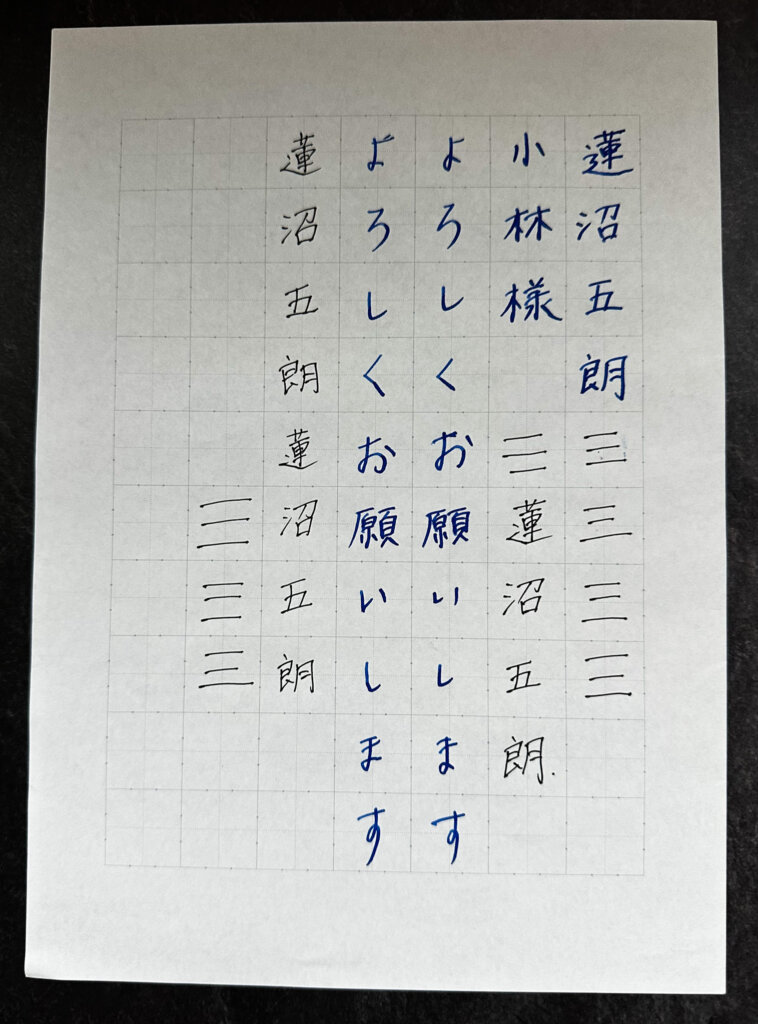 蓮沼五朗三三三三
小林様三蓮沼五朗.
よろしくお願いします
よろしくお願いします
蓮沼五朗蓮沼五朗
三三三